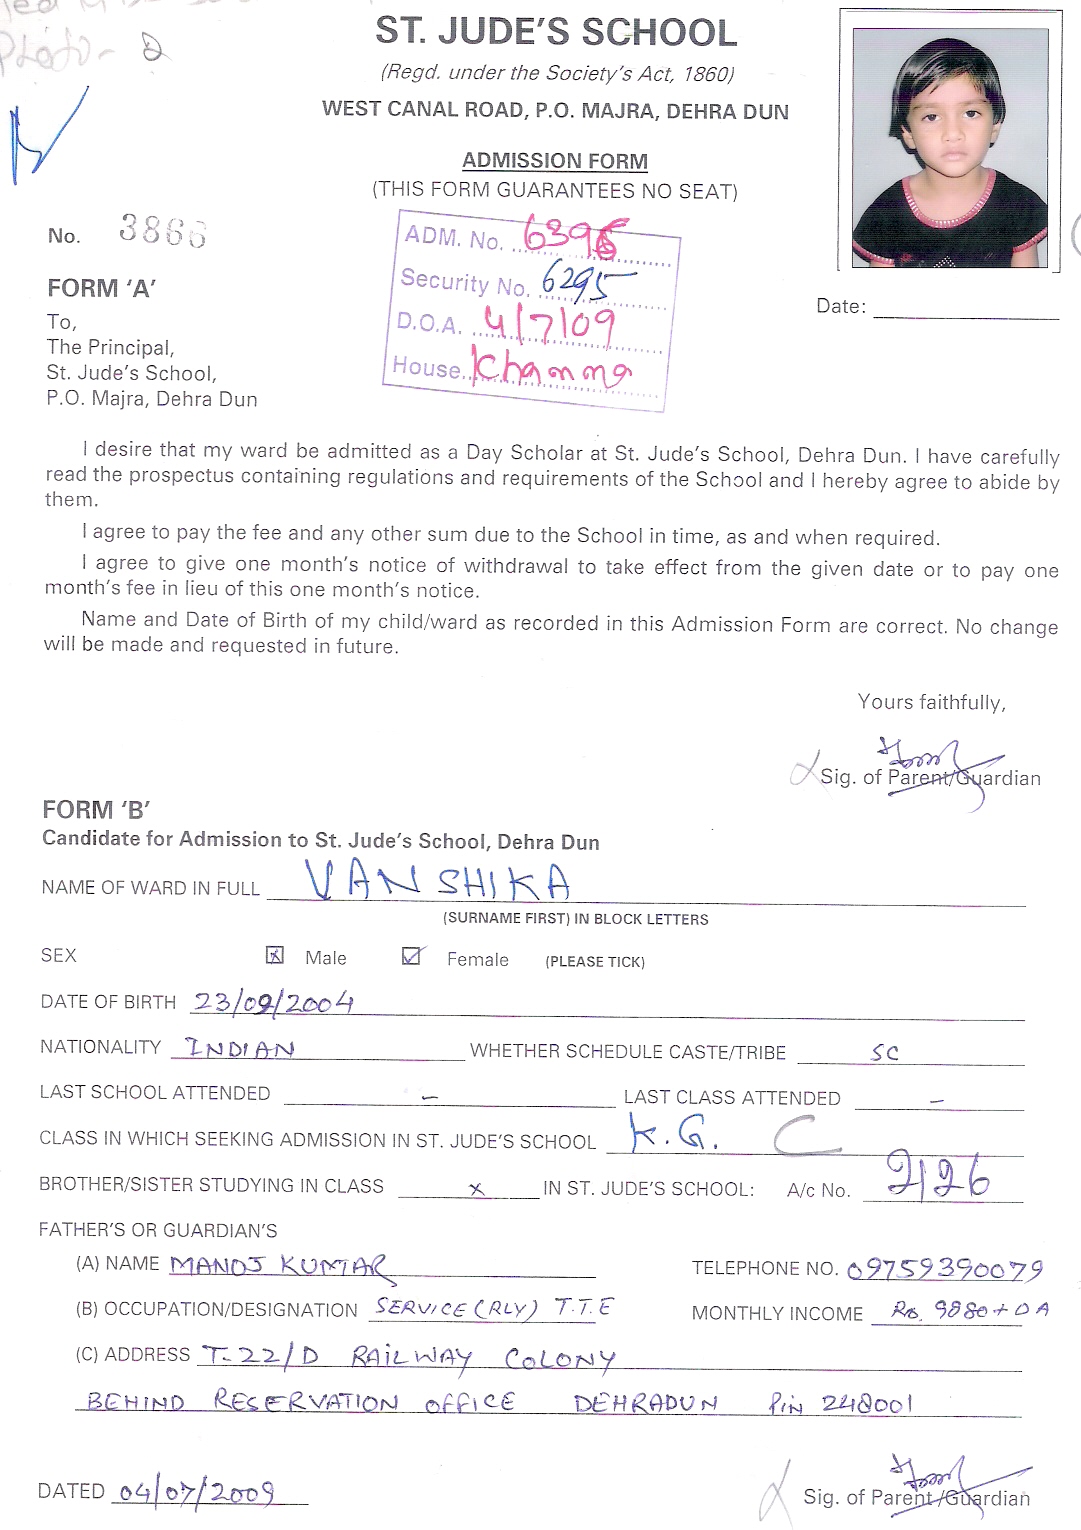 Photo- 2
ST. JUDE'S SCHOOL
(Regd. under the Society's Act, 1860)
WEST CANAL ROAD, P.O. MAJRA, DEHRA DUN
ADMISSION FORM
(THIS FORM GUARANTEES NO SEAT)
No. 3866
ADM. No. 6396
Security No. 6295
D.O.A. 4/7/09
House. Khanna
FORM 'A'
Date:
To,
The Principal,
St. Jude's School,
P.O. Majra, Dehra Dun
I desire that my ward be admitted as a Day Scholar at St. Jude's School, Dehra Dun. I have carefully
read the prospectus containing regulations and requirements of the School and I hereby agree to abide by
them.
I agree to pay the fee and any other sum due to the School in time, as and when required.
I agree to give one month's notice of withdrawal to take effect from the given date or to pay one
month's fee in lieu of this one month's notice.
Name and Date of Birth of my child/ward as recorded in this Admission Form are correct. No change
will be made and requested in future.
Yours faithfully,
Sig. of Parent/Guardian
FORM 'B'
Candidate for Admission to St. Jude's School, Dehra Dun
NAME OF WARD IN FULL VANSHIKA
(SURNAME FIRST) IN BLOCK LETTERS
SEX Male Female (PLEASE TICK)
DATE OF BIRTH 23/09/2004
NATIONALITY INDIAN WHETHER SCHEDULE CASTE/TRIBE SC
LAST SCHOOL ATTENDED - LAST CLASS ATTENDED -
CLASS IN WHICH SEEKING ADMISSION IN ST. JUDE'S SCHOOL K.G. C
BROTHER/SISTER STUDYING IN CLASS x IN ST. JUDE'S SCHOOL: A/c No. 2126
FATHER'S OR GUARDIAN'S
(A) NAME MANOJ KUMAR TELEPHONE NO. 09759390079
(B) OCCUPATION/DESIGNATION SERVICE (RLY) T.T.E MONTHLY INCOME Rs. 9880+DA
(C) ADDRESS T-22/D RAILWAY COLONY
BEHIND RESERVATION OFFICE DEHRADUN PIN 248001
DATED 04/07/2009
Sig. of Parent/Guardian